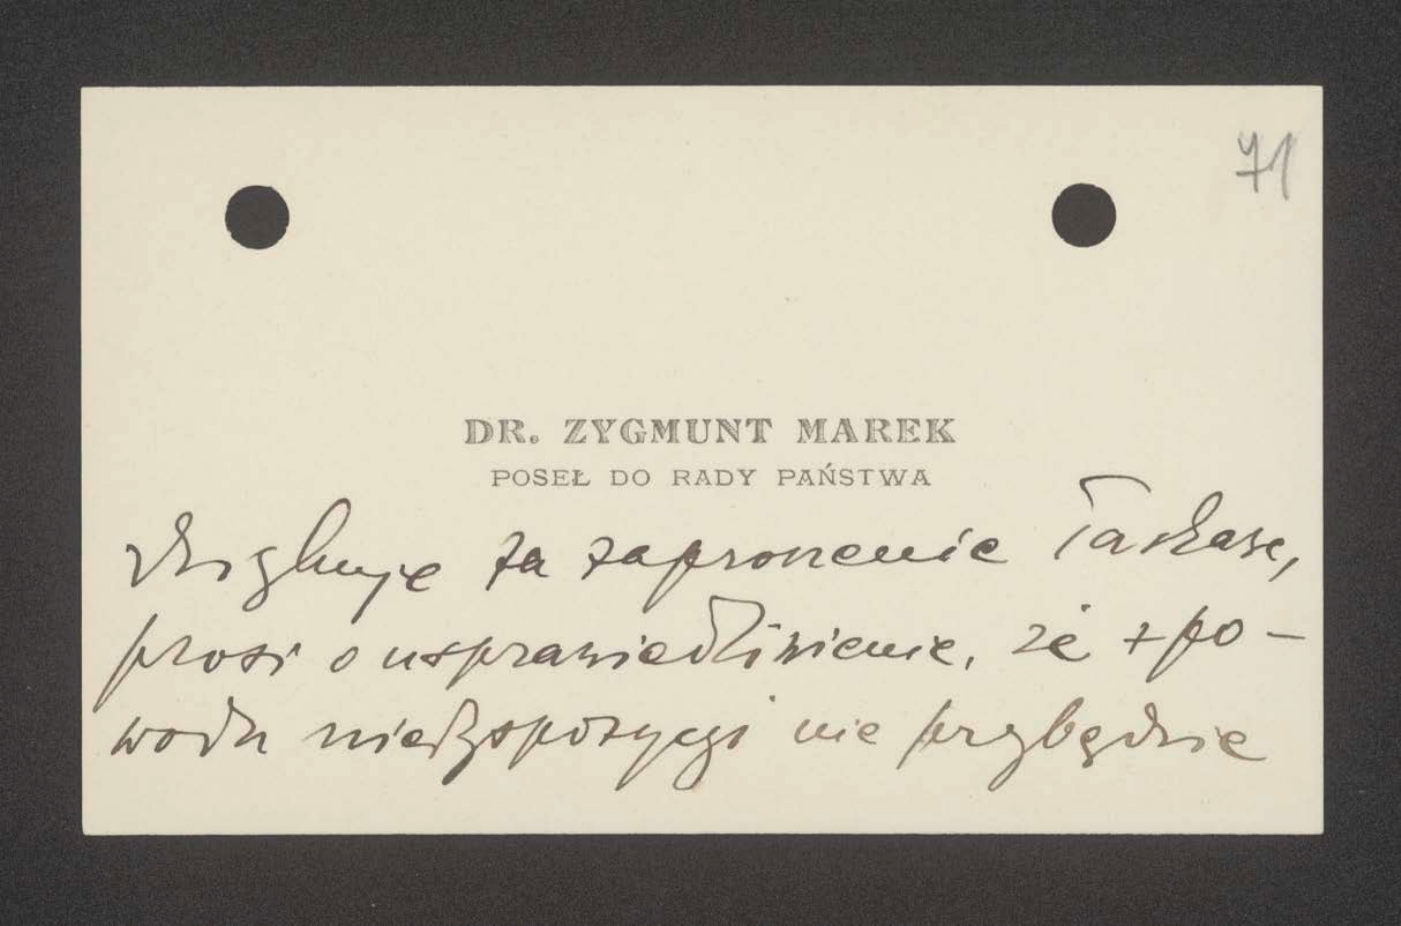 71
DR. ZYGMUNT MAREK
POSEŁ DO RADY PAŃSTWA
dziękuje za zaproszenie łaskawe,
prosi o usprawiedliwienie, że z po-
wodu niedyspozycyi nie przybędzie